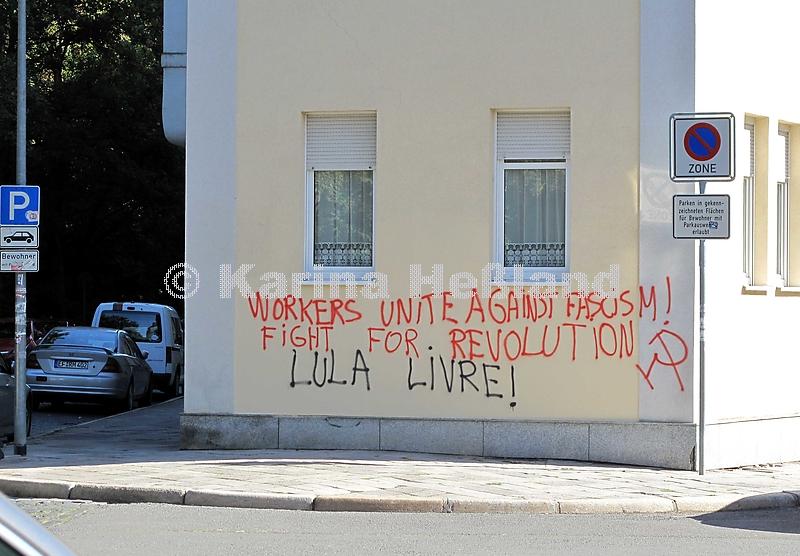 P
Bewohner
EF RM 402
ZONE
Parken in gekenn-
zeichneten Flächen
für Bewohner mit
Parkausweis
erlaubt
© Karina Heßland
WORKERS UNITE AGAINST FASCISM!
FIGHT FOR REVOLUTION
LULA LIVRE!